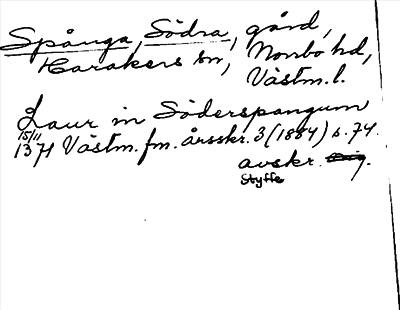 Spånga, Södra, gård,
Harakers sn, Norrbo hd,
Västm. l.
Laur in Söderspangum
15/11
1371 Västm. fm. årsskr. 3 (1884) s. 74.
avskr.
Styffe